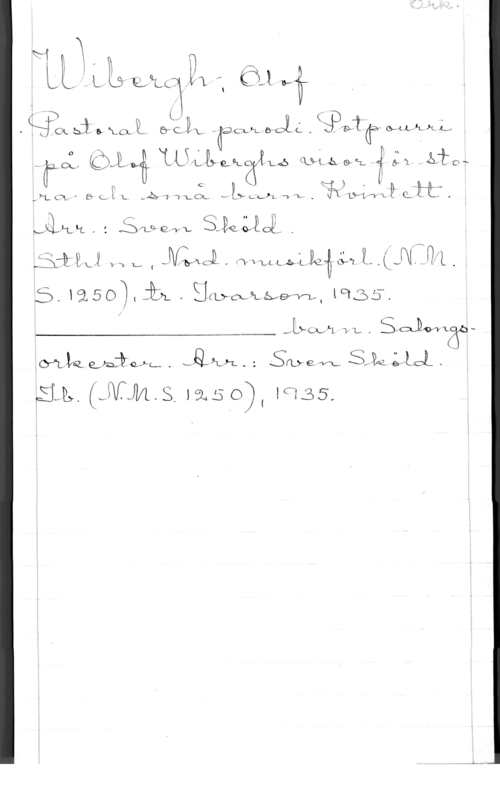 Ork.
Wibergh, Olof
Pastoral och parodi. Potpourri
på Olof Wiberghs visor för sto-
ra och små barn. Kvintett.
Arr.: Sven Sköld.
Sthlm, Nord. musikförl. (N.M.
S. 1250), tr. Ivarson, 1935.
barn. Salongs-
orkester. Arr.: Sven Sköld.
Ib. (N.M.S. 1250), 1935.